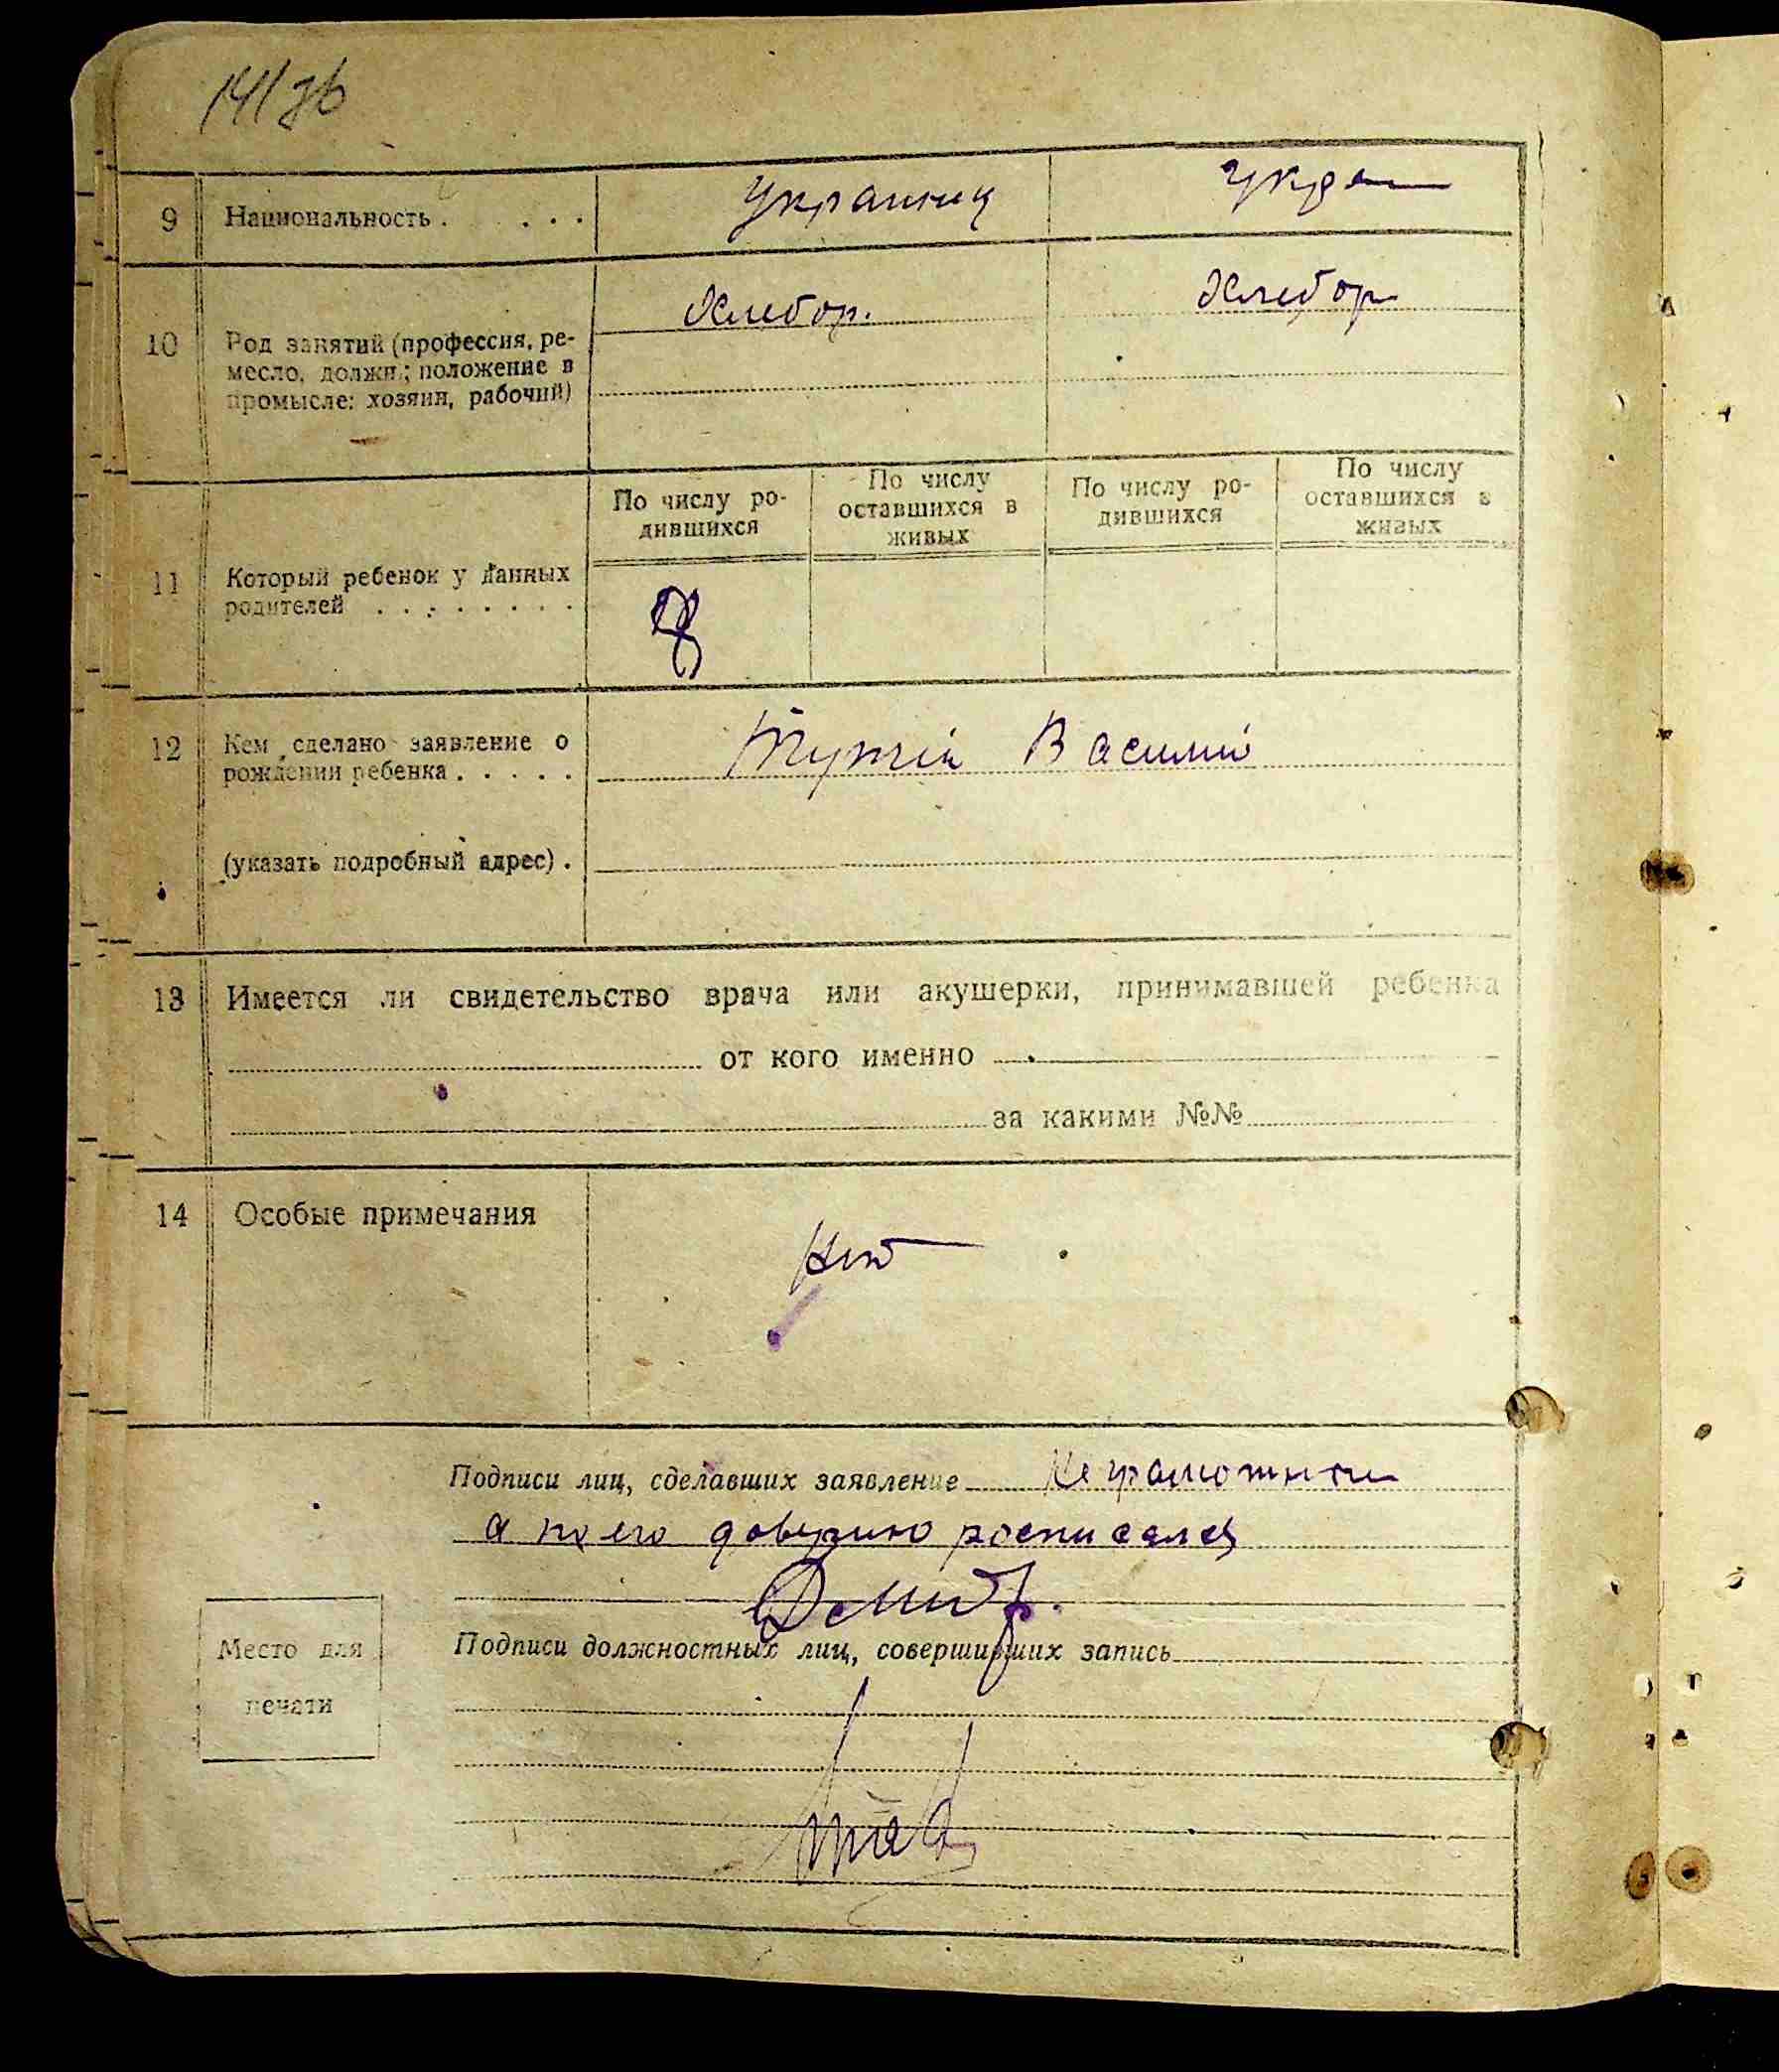 141 зв
9 Национальность . . . . Украинец Укра
10 Род занятий (профессия, ре-
месло, должн.; положение в
промысле: хозяин, рабочий)
Хлебор. Хлебор
11 Который ребенок у данных
родителей . . . . . . . .
По числу ро-
дившихся
По числу
оставшихся в
живых
По числу ро-
дившихся
По числу
оставшихся в
живых
8
12 Кем сделано заявление о
рождении ребенка . . . . .
Василий
(указать подробный адрес) .
13 Имеется ли свидетельство врача или акушерки, принимавшей ребенка
от кого именно
за какими №№
14 Особые примечания
Нет
Подписи лиц, сделавших заявление Неграмотный
а по его доверию росписался
Место для
печати
Подписи должностных лиц, совершивших запись